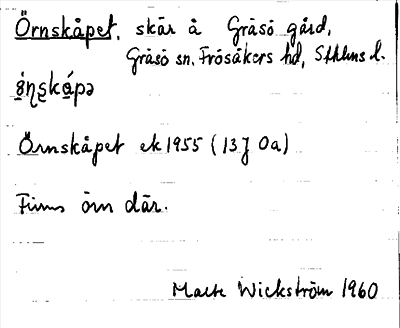 Örnskåpet, skär å Gräsö gård,
Gräsö sn. Frösåkers hd, Sthlms l.
Örnskåpet ek 1955 (13J 0a)
Finns örn där.
Malte Wickström 1960